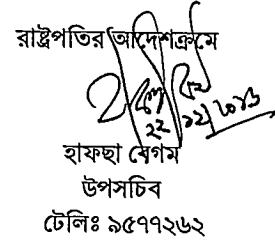 রাষ্ট্রপতির আদেশক্রমে
২২/১২/২০১৬
হাফছা বেগম
উপসচিব
টেলিঃ ৯৫৭৭২৬২